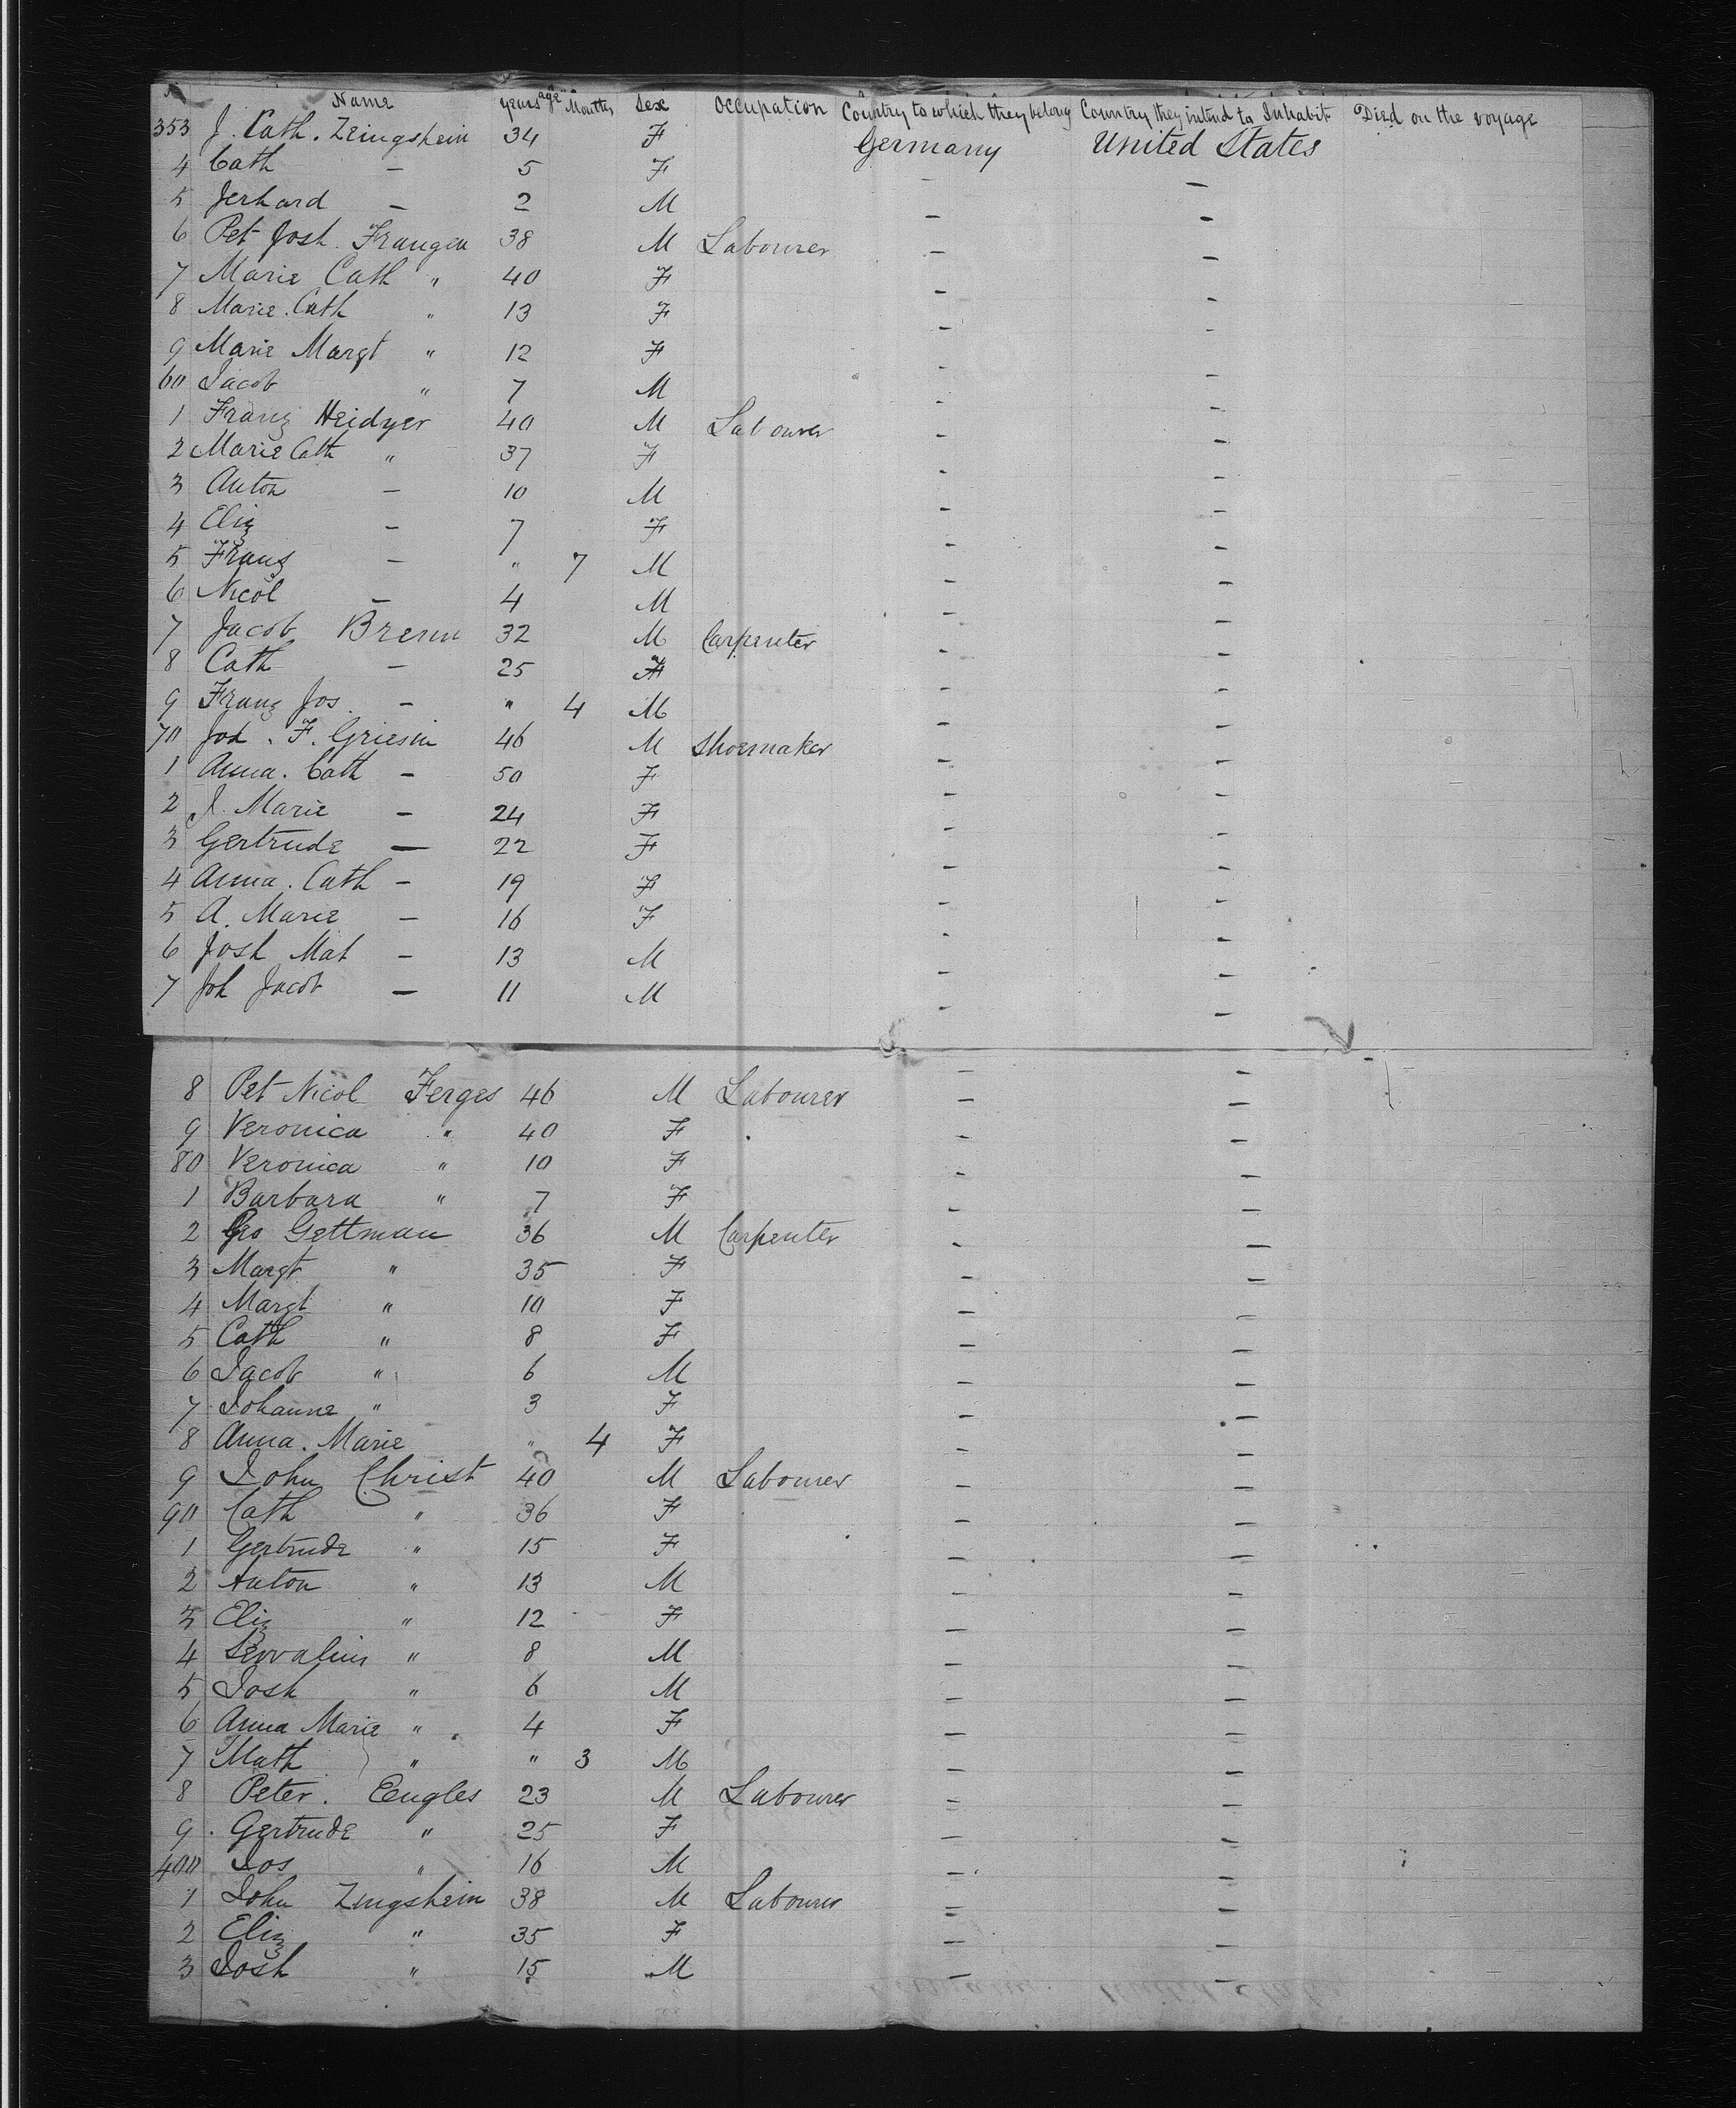 Name years age Months Sex Occupation Country to which they belong Country they intend to Inhabit Died on the voyage
353 J. Cath. Zeingshein 34 F Germany United States
4 Cath — 5 F - -
5 Jerhard — 2 M - -
6 Pet Josh. Frangen 38 M Labourer - -
7 Marie Cath " 40 F - -
8 Marie. Cath " 13 F - -
9 Marie Margt " 12 F - -
60 Jacob " 7 M - -
1 Franz Heidger 40 M Labourer - -
2 Marie Cath " 37 F - -
3 Anton — 10 M - -
4 Eliz — 7 F - -
5 Franz — " 7 M - -
6 Nicol — 4 M - -
7 Jacob Brenn 32 M Carpenter - -
8 Cath — 25 F - -
9 Franz Jos. — " 4 M - -
70 Joh. F. Griesin 46 M Shoemaker - -
1 Anna. Cath — 50 F - -
2 J. Marie — 24 F - -
3 Gertrude — 22 F - -
4 Anna. Cath — 19 F - -
5 A. Marie — 16 F - -
6 Josh Mat — 13 M - -
7 Joh Jacob — 11 M - -
8 Pet Nicol Ferges 46 M Labourer - -
9 Veronica " 40 F - -
80 Veronica " 10 F - -
1 Barbara " 7 F - -
2 Geo Gettman 36 M Carpenter - -
3 Margt " 35 F - -
4 Margt " 10 F - -
5 Cath " 8 F - -
6 Jacob " 6 M - -
7 Johanne " 3 F - -
8 Anna. Marie " 4 F - -
9 John Christ 40 M Labourer - -
90 Cath " 36 F - -
1 Gertrude " 15 F - -
2 Anton " 13 M - -
3 Eliz " 12 F - -
4 " 8 M - -
5 Josh " 6 M - -
6 Anna Marie " 4 F - -
7 Math " " 3 M - -
8 Peter. Eengles 23 M Labourer - -
9 Gertrude " 25 F - -
400 Jos " 16 M - -
1 John Zingshein 38 M Labourer - -
2 Eliz " 35 F - -
3 Josh " 15 M - -